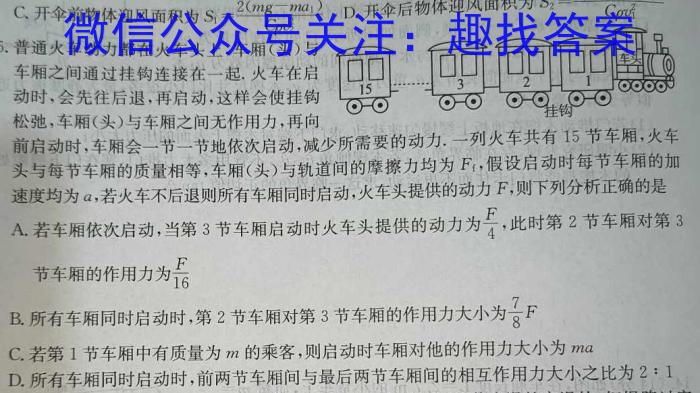 C. 开伞前物体迎风面积为 S₁ 2(mg−ma₁) D. 开伞后物体迎风面积为 S₂ Cρv₀²
微信公众号关注：趣找答案
5. 普通火车动力都在火车头上
车厢之间通过挂钩连接在一起. 火车在启
动时, 会先往后退, 再启动, 这样会使挂钩
松弛, 车厢(头)与车厢之间无作用力, 再向
15 3 2 1 车头
挂钩
前启动时, 车厢会一节一节地依次启动, 减少所需要的动力. 一列火车共有 15 节车厢, 火车
头与每节车厢的质量相等, 车厢(头)与轨道间的摩擦力均为 Ff, 假设启动时每节车厢的加
速度均为 a, 若火车不后退则所有车厢同时启动, 火车头提供的动力 F, 则下列分析正确的是
A. 若车厢依次启动, 当第 3 节车厢启动时火车头提供的动力为 F/4, 此时第 2 节车厢对第 3
节车厢的作用力为 F/16
B. 所有车厢同时启动时, 第 2 节车厢对第 3 节车厢的作用力大小为 7/8 F
C. 若第 1 节车厢中有质量为 m 的乘客, 则启动时车厢对他的作用力大小为 ma
D. 所有车厢同时启动时, 前两节车厢间与最后两节车厢间的相互作用力大小之比为 2∶1